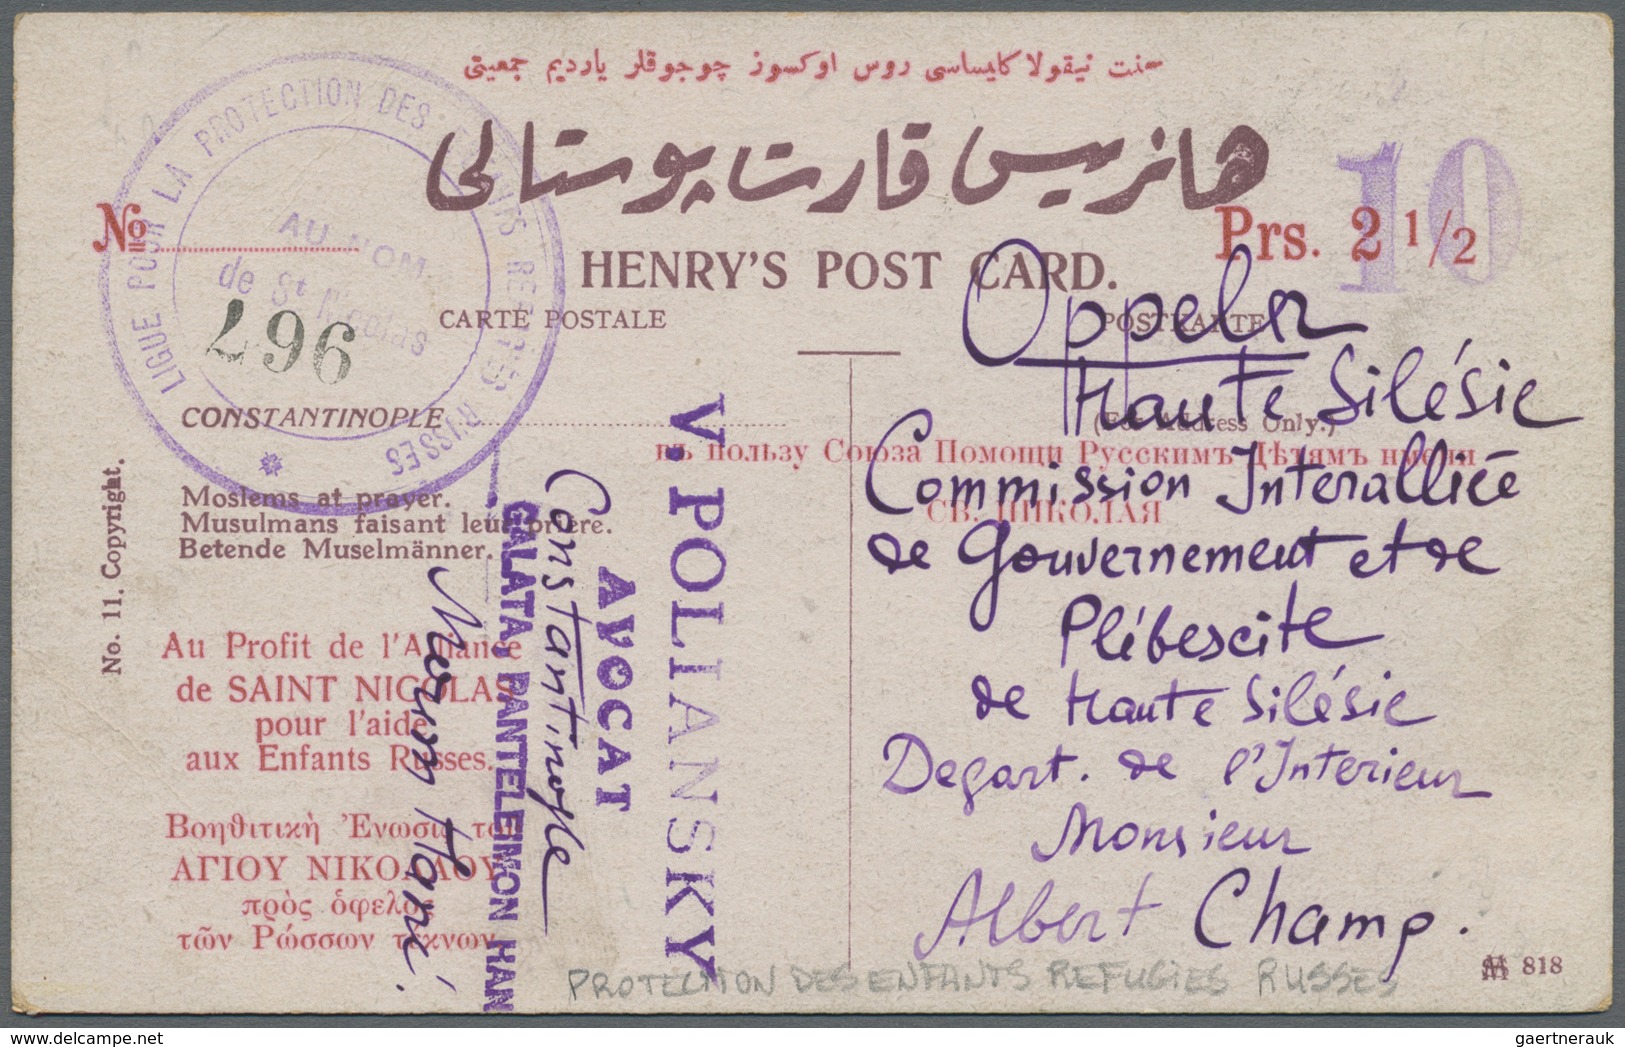 سنت نيقولا كليساسى روس اوكسوز چوجوقلر يارديم جمعيتى
هانريس قارت پوستالى
10
№
Prs. 2 1/2
HENRY'S POST CARD.
CARTE POSTALE
POSTKARTE
LIGUE POUR LA PROTECTION DES ENFANTS REFUGIES RUSSES
AU NOM
de St Nicolas
496
CONSTANTINOPLE
(For Address Only.)
въ пользу Союза Помощи Русскимъ Дѣтямъ имени
СВ. НИКОЛАЯ
Moslems at prayer.
Musulmans faisant leur prière.
Betende Muselmänner.
No. 11. Copyright.
Au Profit de l'Alliance
de SAINT NICOLAS
pour l'aide
aux Enfants Russes.
Βοηθιτικὴ Ἕνωσις τοῦ
ΑΓΙΟΥ ΝΙΚΟΛΑΟΥ
πρὸς ὄφελος
τῶν Ρώσσων τέκνων
V. POLIANSKY
AVOCAT
Constantinople
GALATA, PANTELEIMON HAN
Merum Hané.
Oppeln
Haute Silésie
Commission Interalliée
de Gouvernement et de
Plébescite
de Haute Silésie
Depart. de l'Interieur
Monsieur
Albert Champ.
818
PROTECTION DES ENFANTS REFUGIES RUSSES
gaertnerauk